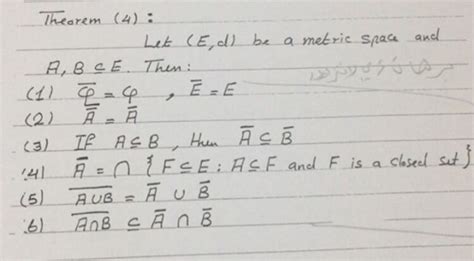 Theorem (4) :
Let (E,d) be a metric space and
A, B ⊆ E. Then:
(1) φ̅ = φ , E̅ = E
(2) A̿ = A̅
(3) If A ⊆ B, then A̅ ⊆ B̅
(4) A̅ = ∩ { F ⊆ E : A ⊆ F and F is a closed set }
(5) A̅∪̅B̅ = A̅ ∪ B̅
(6) A̅∩̅B̅ ⊆ A̅ ∩ B̅